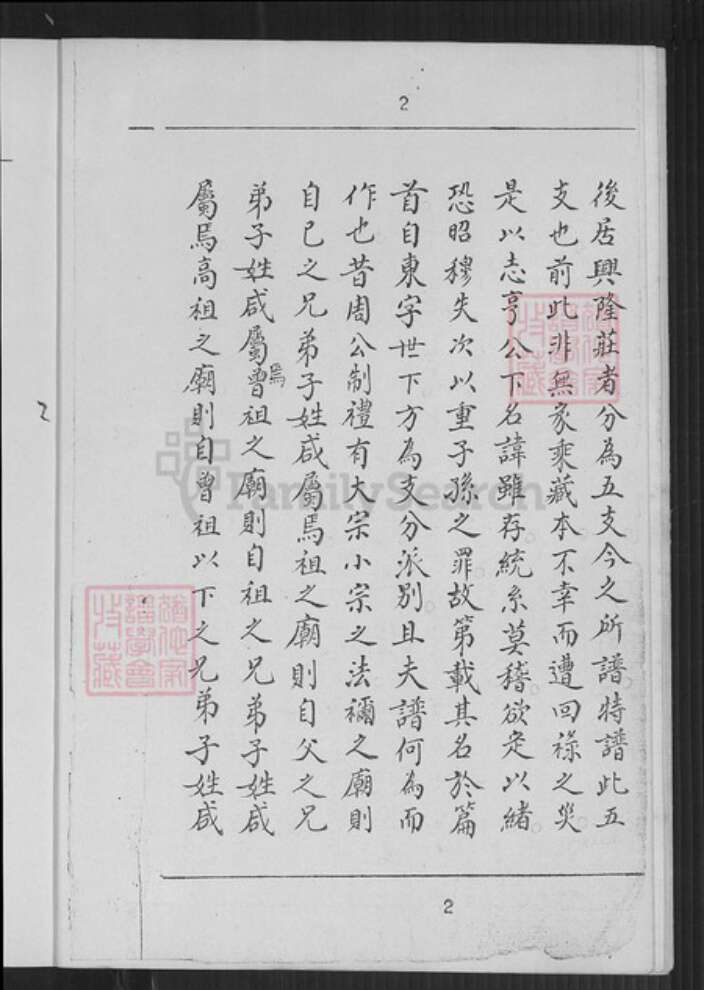 2
後居興隆莊者分為五支今之所譜特譜此五
支也前此非無家乘藏本不幸而遭回祿之災
是以志亨公下名諱雖存統系莫稽欲定以緒
恐昭穆失次以重子孫之罪故第載其名於篇
首自東字世下方為支分派別且夫譜何為而
作也昔周公制禮有大宗小宗之法禰之廟則
自已之兄弟子姓咸屬焉祖之廟則自父之兄
弟子姓咸屬焉曾祖之廟則自祖之兄弟子姓咸
屬焉高祖之廟則自曾祖以下之兄弟子姓咸
2
2
FamilySearch